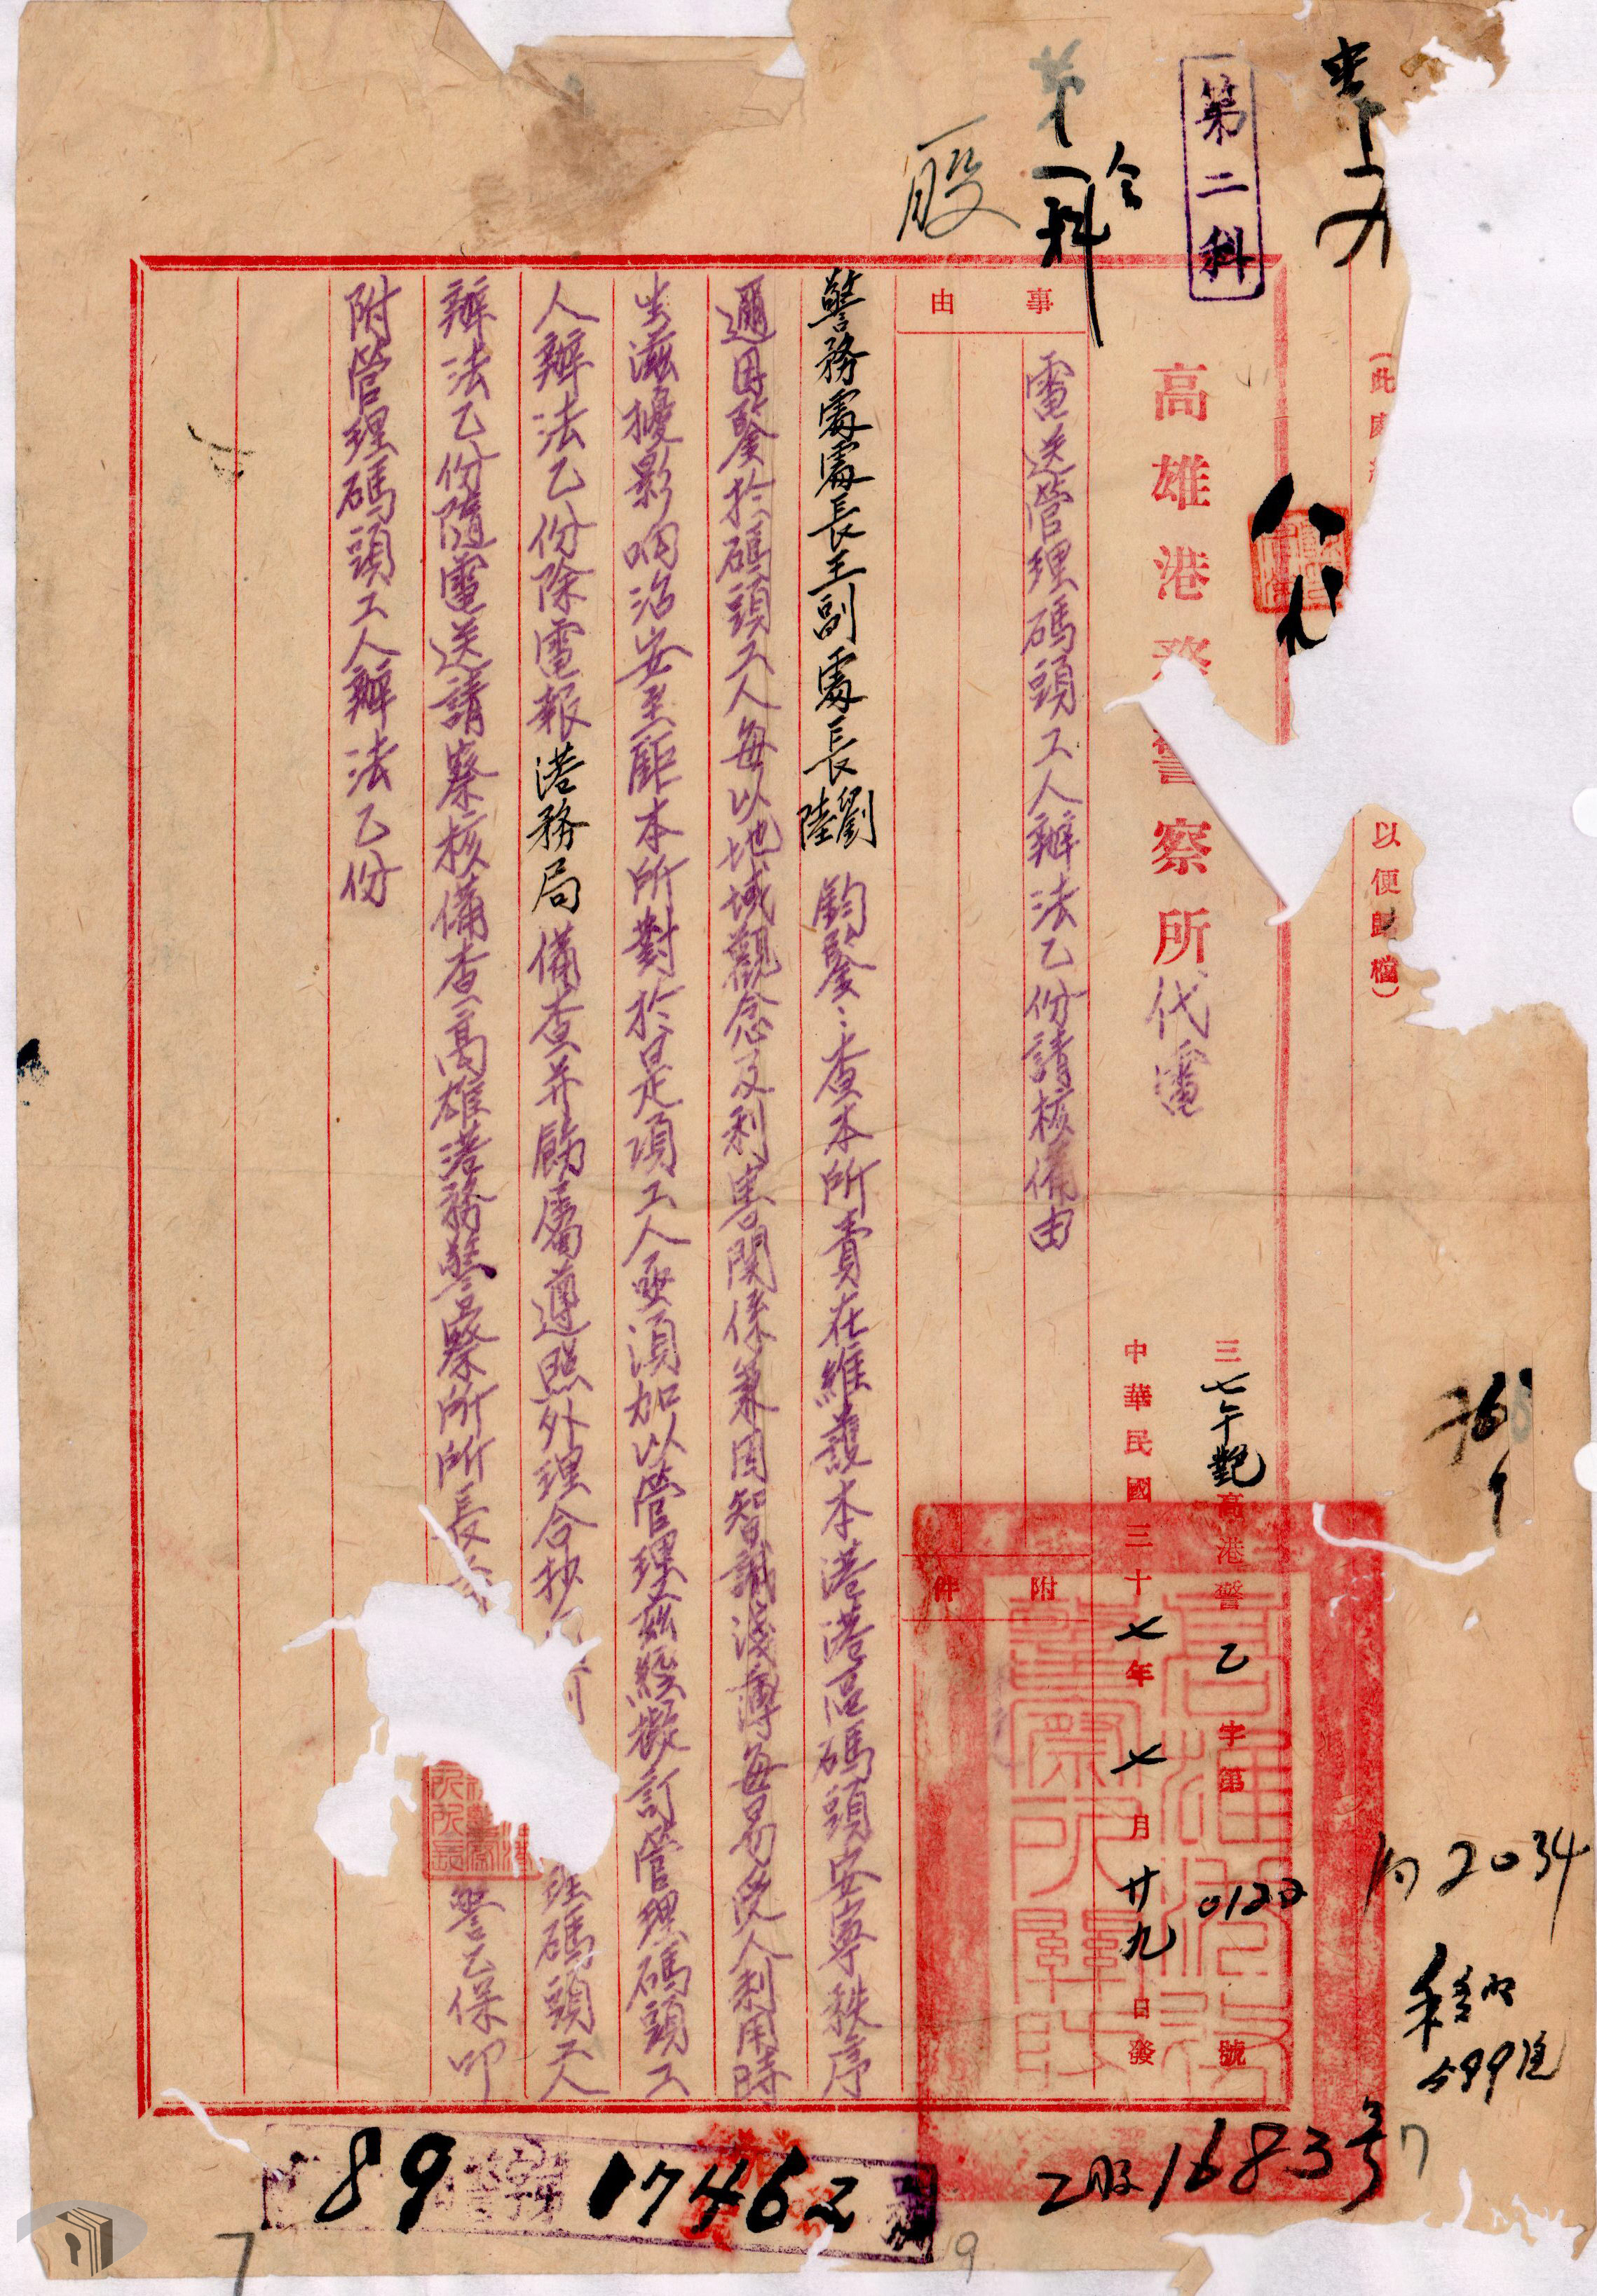 第二科
第一科
股
(此處
以便歸檔)
高雄港務警察所代電
三七午艷高港警乙字第0122號
中華民國三十七年七月廿九日發
事由
電送管理碼頭工人辦法乙份請核備由
附件
警務處處長王副處長劉陸鈞鑒：查本所責在維護本港港區碼頭安寧秩序
邇因鑒於碼頭工人每以地域觀念及利害關係兼因智識淺薄每易受人利用時
生滋擾影响治安至鉅本所對於是項工人亟須加以管理茲經擬訂管理碼頭工
人辦法乙份除電報港務局備查并飭屬遵照外理合抄 理碼頭工人
辦法乙份隨電送請察核備查高雄港務警察所所長 警乙保叩
附管理碼頭工人辦法乙份
高雄港務警察所關防
内2034
乙股1683号
89 17462
7
9
7